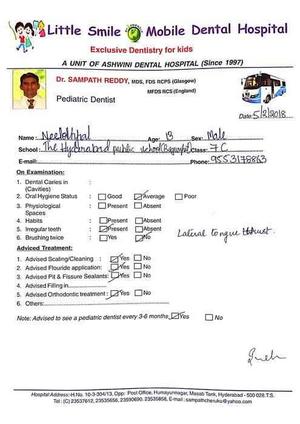 Little Smile Mobile Dental Hospital
Exclusive Dentistry for kids
A UNIT OF ASHWINI DENTAL HOSPITAL (Since 1997)
Dr. SAMPATH REDDY, MDS, FDS RCPS (Glasgow)
MFDS RCS (England)
Pediatric Dentist
Date: 5/2/2018
Name: Age: 13 Sex: Male
School: The Hyderabad public school Class: 7 C
E-mail: Phone: 9553178863
On Examination:
1. Dental Caries in (Cavities) :
2. Oral Hygiene Status : Good Average Poor
3. Physiological Spaces : Present Absent
4. Habits : Present Absent
5. Irregular teeth : Present Absent
6. Brushing twice : Yes No
Lateral tongue thrust.
Adviced Treatment:
1. Advised Scaling/Cleaning : Yes No
2. Advised Flouride application: Yes No
3. Advised Pit & Fissure Sealants: Yes No
4. Advised Filling in
5. Advised Orthodontic treatment : Yes No
6. Others:
Note: Advised to see a pediatric dentist every 3-6 months Yes No
Hospital Address: H.No. 10-3-304/13, Opp: Post Office, Humayunnagar, Masab Tank, Hyderabad - 500 028 T.S.
Tel: (C) 23537612, 23535656, 23590690, 23535858, E-mail : sampathcheruku@yahoo.com